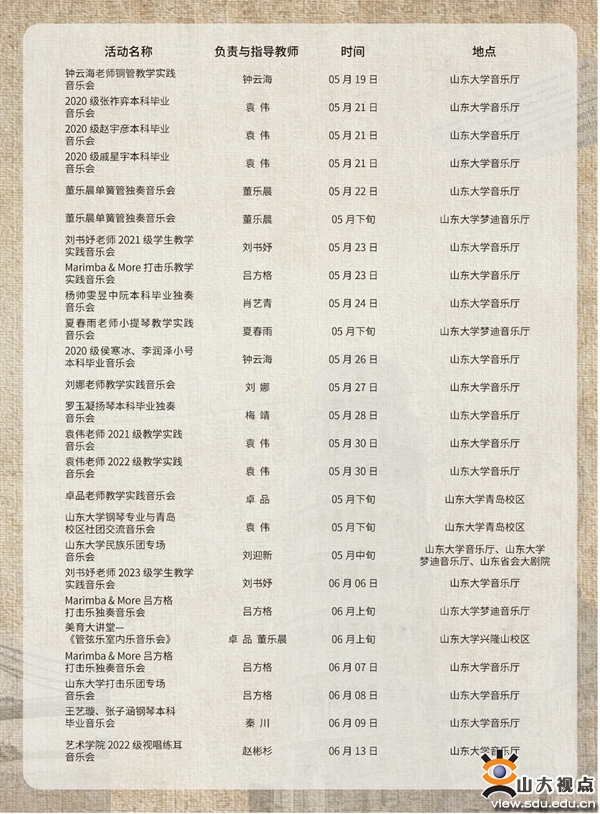 活动名称 负责与指导教师 时间 地点
钟云海老师铜管教学实践
音乐会 钟云海 05 月 19 日 山东大学音乐厅
2020 级张祚弈本科毕业
音乐会 袁 伟 05 月 21 日 山东大学音乐厅
2020 级赵宇彦本科毕业
音乐会 袁 伟 05 月 21 日 山东大学音乐厅
2020 级戚星宇本科毕业
音乐会 袁 伟 05 月 21 日 山东大学音乐厅
董乐晨单簧管独奏音乐会 董乐晨 05 月 22 日 山东大学音乐厅
董乐晨单簧管独奏音乐会 董乐晨 05 月下旬 山东大学梦迪音乐厅
刘书妤老师 2021 级学生教学
实践音乐会 刘书妤 05 月 23 日 山东大学音乐厅
Marimba & More 打击乐教学
实践音乐会 吕方格 05 月 23 日 山东大学音乐厅
杨帅雯昱中阮本科毕业独奏
音乐会 肖艺青 05 月 24 日 山东大学音乐厅
夏春雨老师小提琴教学实践
音乐会 夏春雨 05 月下旬 山东大学梦迪音乐厅
2020 级侯寒冰、李润泽小号
本科毕业音乐会 钟云海 05 月 26 日 山东大学音乐厅
刘娜老师教学实践音乐会 刘 娜 05 月 27 日 山东大学音乐厅
罗玉凝扬琴本科毕业独奏
音乐会 梅 靖 05 月 28 日 山东大学音乐厅
袁伟老师 2021 级教学实践
音乐会 袁 伟 05 月 30 日 山东大学音乐厅
袁伟老师 2022 级教学实践
音乐会 袁 伟 05 月 30 日 山东大学音乐厅
卓品老师教学实践音乐会 卓 品 05 月下旬 山东大学青岛校区
山东大学钢琴专业与青岛
校区社团交流音乐会 袁 伟 05 月下旬 山东大学青岛校区
山东大学民族乐团专场
音乐会 刘迎新 05 月中旬 山东大学音乐厅、山东大学
梦迪音乐厅、山东省会大剧院
刘书妤老师 2023 级学生教学
实践音乐会 刘书妤 06 月 06 日 山东大学音乐厅
Marimba & More 吕方格
打击乐独奏音乐会 吕方格 06 月上旬 山东大学梦迪音乐厅
美育大讲堂—
《管弦乐室内乐音乐会》 卓 品 董乐晨 06 月上旬 山东大学兴隆山校区
Marimba & More 吕方格
打击乐独奏音乐会 吕方格 06 月 07 日 山东大学音乐厅
山东大学打击乐团专场
音乐会 吕方格 06 月 08 日 山东大学音乐厅
王艺璇、张子涵钢琴本科
毕业音乐会 秦 川 06 月 09 日 山东大学音乐厅
艺术学院 2022 级视唱练耳
音乐会 赵彬杉 06 月 13 日 山东大学音乐厅
山大视点
view.sdu.edu.cn